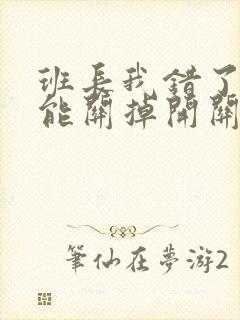 班长我错了
能關掉開關
筆仙在夢游2